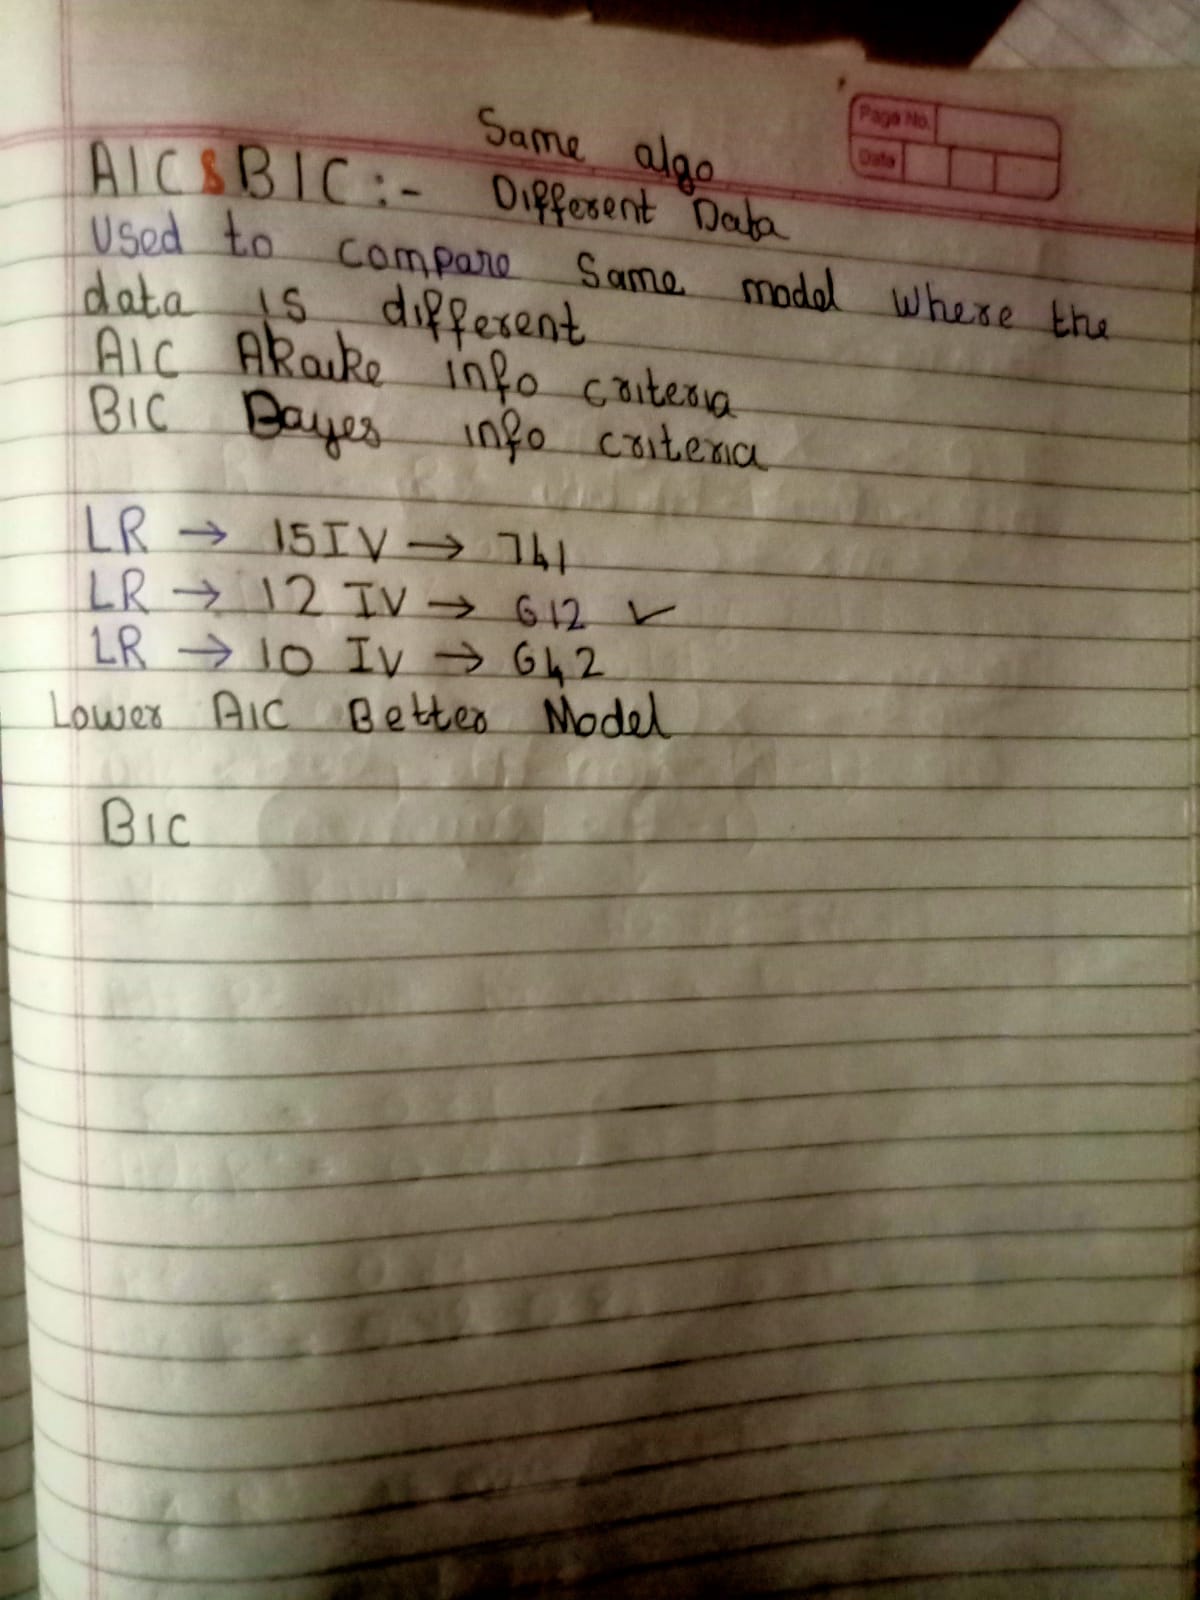 Page No.
Date
Same algo
AIC & BIC :- Different Data
Used to compare same model where the
data is different
AIC Akaike info criteria
BIC Bayes info criteria
LR → 15 IV → 741
LR → 12 IV → 612 ✓
LR → 10 IV → 642
Lower AIC Better Model
BIC